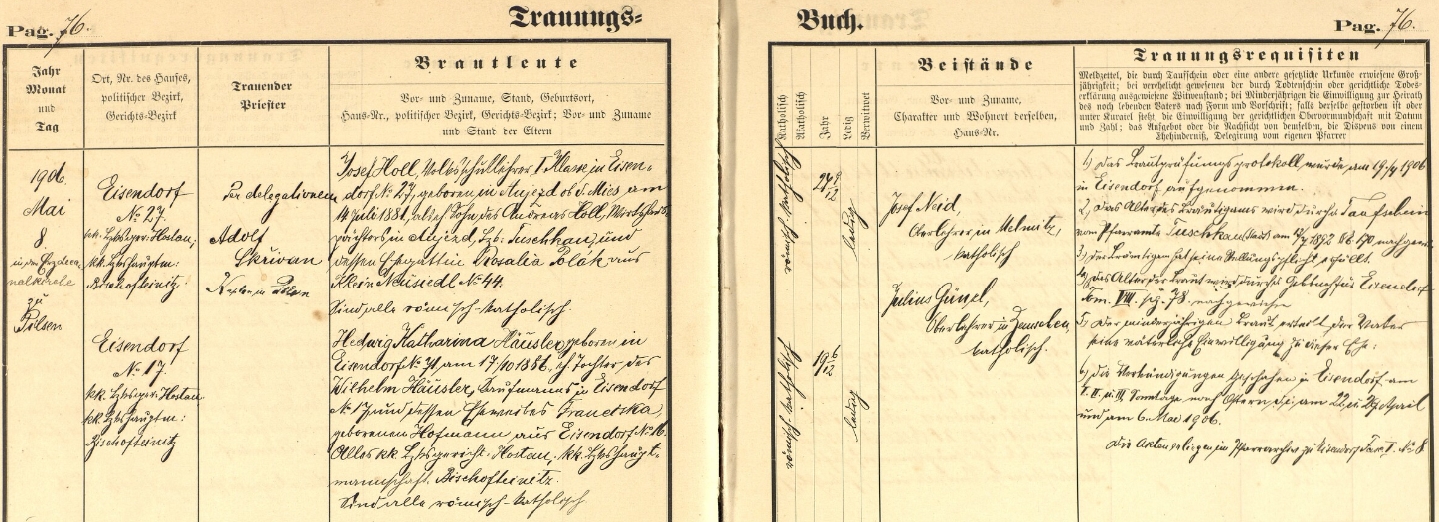 Pag. 76.
Trauungs=
Jahr
Monat
und
Tag
Ort, Nr. des Hauses,
politischer Bezirk,
Gerichts-Bezirk
Trauender
Priester
Brautleute
Vor- und Zuname, Stand, Geburtsort,
Haus-Nr., politischer Bezirk, Gerichts-Bezirk; Vor- und Zuname
und Stand der Eltern
1906.
Mai
8
in der Erzdeca
nalkirche
zu
Pilsen
Eisendorf
No 27.
kk. Bzksger: Hostau,
kk. Bzkshauptm:
Bischofteinitz.
Eisendorf
No 17.
kk. Bzksger: Hostau
kk. Bzkshauptm:
Bischofteinitz
Per delegationem
Adolf
Skřivan
Kaplan in Pilsen
Josef Holl, Volksschullehrer I Klasse in Eisen-
dorf No 27, geboren in Anjezd ob d. Mies am
Juli 1881, Sohn des Andreas Holl, Wirtshaus-
pächters in Anjezd, Bzk: Tuschkau, und
dessen Ehegattin Rosalia Polák aus
Klein Neusiedl No 44.
Sind alle römisch-katholisch.
Hedwig Katharina Häusler, geboren in
Eisendorf No 31, am 17/10 1886, Tochter des
Wilhelm Häusler, Kaufmanns in Eisendorf
No 17 und dessen Eheweibes Franciska,
geborenen Hofmann aus Eisendorf No 16.
Alles kk. Bzksgericht. Hostau, kk. Bzkshaupt-
mannschaft. Bischofteinitz.
Sind alle römisch-katholisch
Buch.
Pag. 76.
Katholisch
Akatholisch
Jahr
Ledig
Verwitwet
Beistände
Vor- und Zuname,
Charakter und Wohnort derselben,
Haus-Nr.
Trauungsrequisiten
Meldzettel, die durch Taufschein oder eine andere gesetzliche Urkunde erwiesene Groß-
jährigkeit; bei verehelicht gewesenen der durch Todenschein oder gerichtliche Todes-
erklärung ausgewiesene Witwenstand; bei Minderjährigen die Einwilligung zur Heirath
des noch lebenden Vaters nach Form und Vorschrift; falls derselbe gestorben ist oder
unter Kuratel steht, die Einwilligung der gerichtlichen Obervormundschaft mit Datum
und Zahl; das Aufgebot oder die Nachsicht von demselben, die Dispens von einem
Ehehinderniß, Delegirung vom eigenen Pfarrer
römisch-katholisch
24 9/12
ledig
römisch-katholisch
19 6/12
ledig
Josef Neid,
Oberlehrer in
katholisch
Julius Günzl,
Oberlehrer in
katholisch.
1) Das Brautprüfungsprotokoll wurde am 19/4 1906
in Eisendorf aufgenommen.
2) Das Alter des Bräutigams wird durch Taufschein
vom Pfarramte Tuschkau (Stadt) am
3) Der Bräutigam hat seine Stellungspflicht erfüllt.
4) Das Alter der Braut wird durch Geburtsbuch Eisendorf
Tom. VIII. pg. 78. nachgewiesen
5) Der minderjährigen Braut erteilt der Vater
seine väterliche Einwilligung zu dieser Ehe:
6) Die Verkündigungen geschahen in Eisendorf am
I. II. u. III. Sonntage nach Ostern, d.i. am 22. u. 29. April
und am 6. Mai 1906.
Die Akten erliegen im Pfarrarchiv zu Eisendorf Fasc. I. No 8